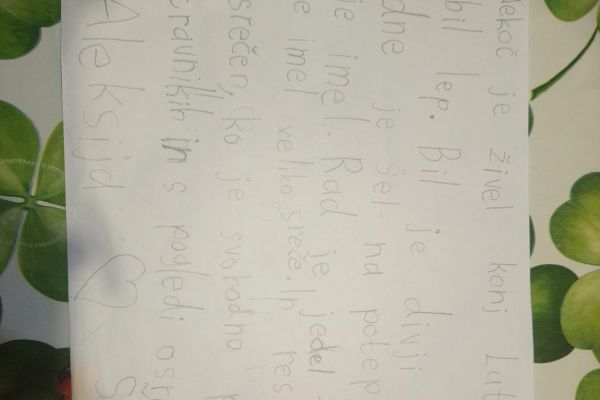 nekoč je živel konj Lut
bil lep. Bil je divji
dne je šel na potep
je imel. Rad je jedel
je imel veliko sreče. In res
srečen, ko je svobodno
travnikih in s pogledi
Aleksija ♡ S